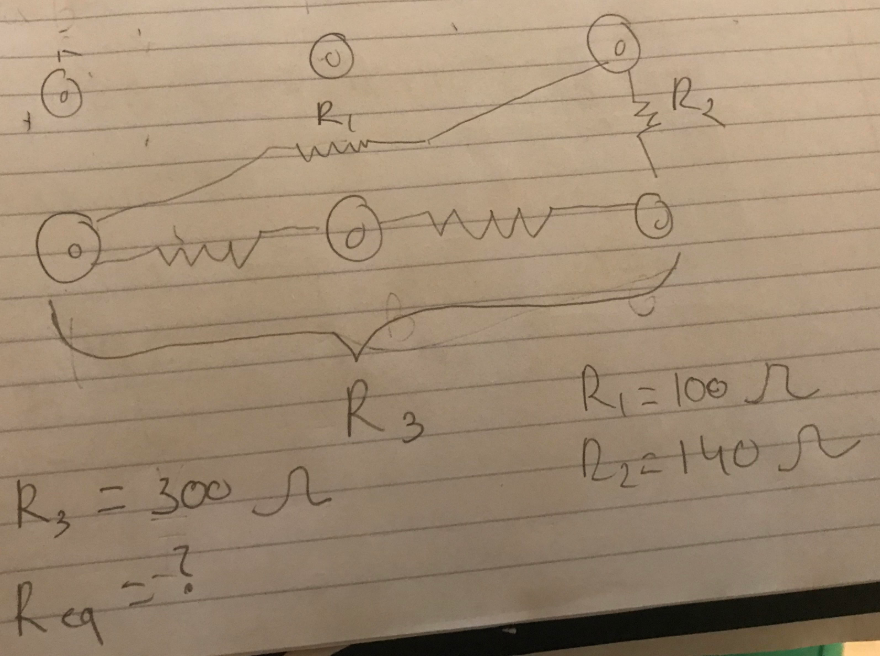 R1
R2
R3
R1 = 100 Ω
R2 = 140 Ω
R3 = 300 Ω
Req = ?